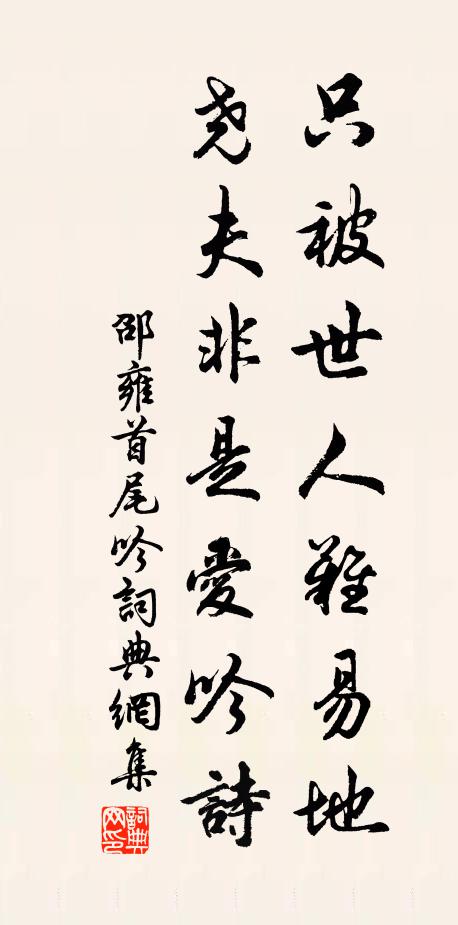 只被世人難易地
堯夫非是愛吟詩
邵雍首尾吟詞典網集
詞典網印